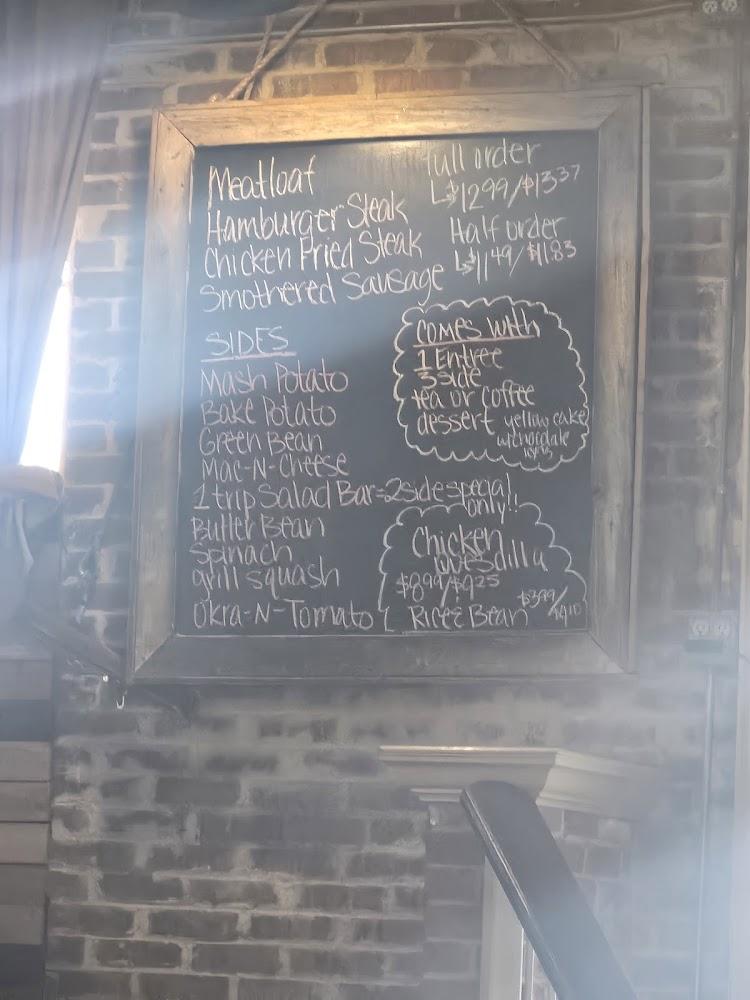 Meatloaf
Hamburger Steak
Chicken Fried Steak
Smothered Sausage
full order
↳$12.99/$13.37
Half order
↳$11.49/$11.83
SIDES
Mash Potato
Bake Potato
Green Bean
Mac-N-Cheese
1 trip Salad Bar=2 side special
only!!
Butter Bean
Spinach
grill squash
Okra-N-Tomato
COMES WITH
1 Entree
3 side
tea or coffee
dessert yellow cake
w/chocolate
Chicken
Quesdilla
$8.99/$9.25
Rice & Bean $3.99/